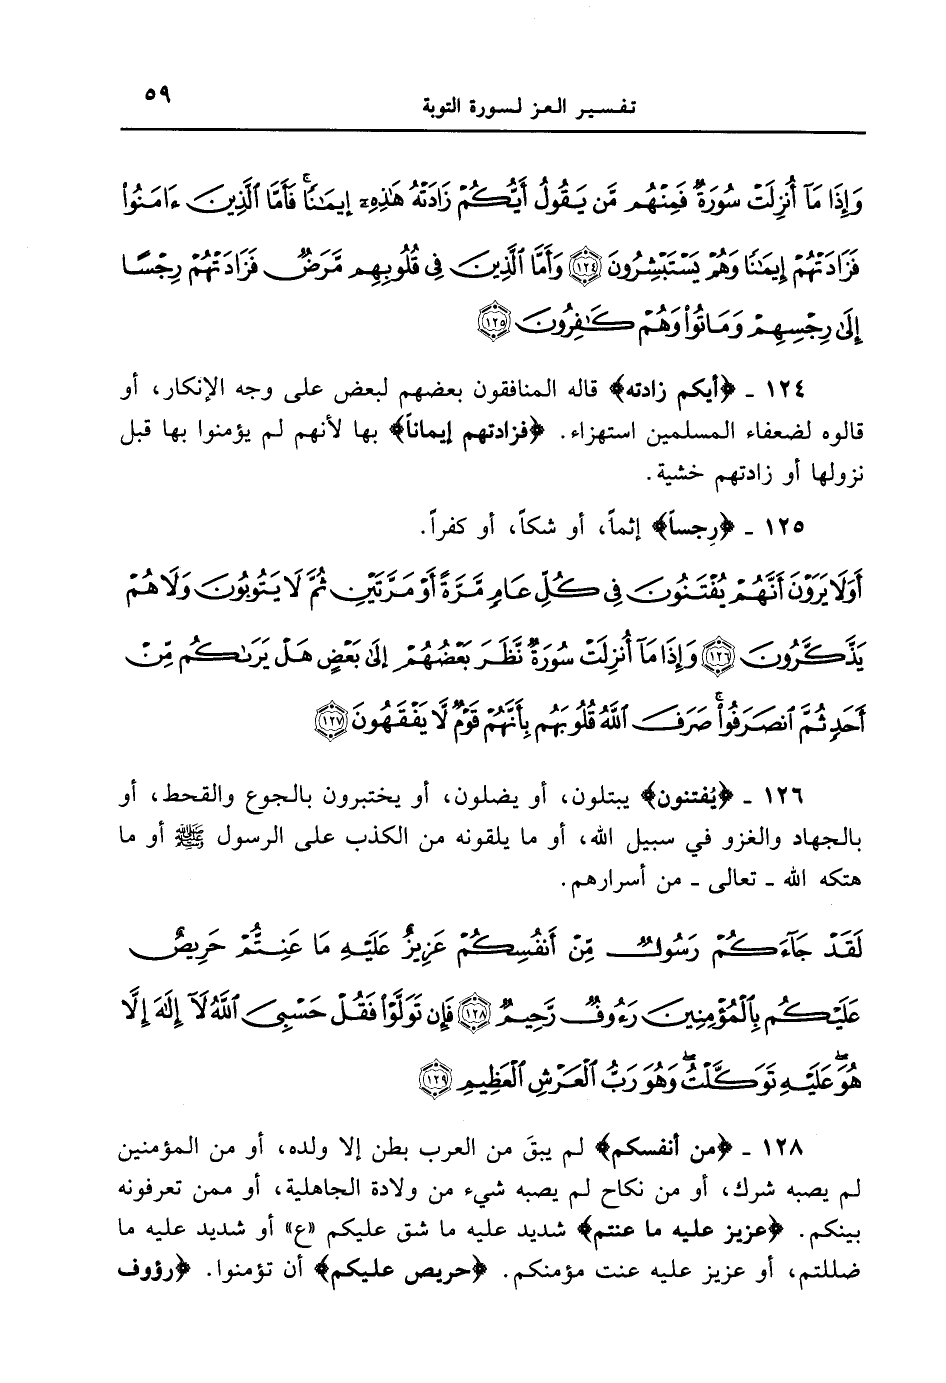 تفسير العز لسورة التوبة ٥٩
وَإِذَا مَآ أُنزِلَتْ سُورَةٌ فَمِنْهُم مَّن يَقُولُ أَيُّكُمْ زَادَتْهُ هَٰذِهِۦٓ إِيمَٰنًا ۚ فَأَمَّا ٱلَّذِينَ ءَامَنُوا۟
فَزَادَتْهُمْ إِيمَٰنًا وَهُمْ يَسْتَبْشِرُونَ ١٢٤ وَأَمَّا ٱلَّذِينَ فِى قُلُوبِهِم مَّرَضٌ فَزَادَتْهُمْ رِجْسًا
إِلَىٰ رِجْسِهِمْ وَمَاتُوا۟ وَهُمْ كَٰفِرُونَ ١٢٥
١٢٤ ـ ﴿أيكم زادته﴾ قاله المنافقون بعضهم لبعض على وجه الإنكار، أو
قالوه لضعفاء المسلمين استهزاء. ﴿فزادتهم إيماناً﴾ بها لأنهم لم يؤمنوا بها قبل
نزولها أو زادتهم خشية.
١٢٥ ـ ﴿رِجساً﴾ إثماً، أو شكاً، أو كفراً.
أَوَلَا يَرَوْنَ أَنَّهُمْ يُفْتَنُونَ فِى كُلِّ عَامٍ مَّرَّةً أَوْ مَرَّتَيْنِ ثُمَّ لَا يَتُوبُونَ وَلَا هُمْ
يَذَّكَّرُونَ ١٢٦ وَإِذَا مَآ أُنزِلَتْ سُورَةٌ نَّظَرَ بَعْضُهُمْ إِلَىٰ بَعْضٍ هَلْ يَرَىٰكُم مِّنْ
أَحَدٍ ثُمَّ ٱنصَرَفُوا۟ ۚ صَرَفَ ٱللَّهُ قُلُوبَهُم بِأَنَّهُمْ قَوْمٌ لَّا يَفْقَهُونَ ١٢٧
١٢٦ ـ ﴿يُفتنون﴾ يبتلون، أو يضلون، أو يختبرون بالجوع والقحط، أو
بالجهاد والغزو في سبيل الله، أو ما يلقونه من الكذب على الرسول ﷺ أو ما
هتكه الله ـ تعالى ـ من أسرارهم.
لَقَدْ جَآءَكُمْ رَسُولٌ مِّنْ أَنفُسِكُمْ عَزِيزٌ عَلَيْهِ مَا عَنِتُّمْ حَرِيصٌ
عَلَيْكُم بِٱلْمُؤْمِنِينَ رَءُوفٌ رَّحِيمٌ ١٢٨ فَإِن تَوَلَّوْا۟ فَقُلْ حَسْبِىَ ٱللَّهُ لَآ إِلَٰهَ إِلَّا
هُوَ ۖ عَلَيْهِ تَوَكَّلْتُ ۖ وَهُوَ رَبُّ ٱلْعَرْشِ ٱلْعَظِيمِ ١٢٩
١٢٨ ـ ﴿من أنفسكم﴾ لم يبقَ من العرب بطن إلا ولده، أو من المؤمنين
لم يصبه شرك، أو من نكاح لم يصبه شيء من ولادة الجاهلية، أو ممن تعرفونه
بينكم. ﴿عزيز عليه ما عنتم﴾ شديد عليه ما شق عليكم «ع» أو شديد عليه ما
ضللتم، أو عزيز عليه عنت مؤمنكم. ﴿حريص عليكم﴾ أن تؤمنوا. ﴿رؤوف